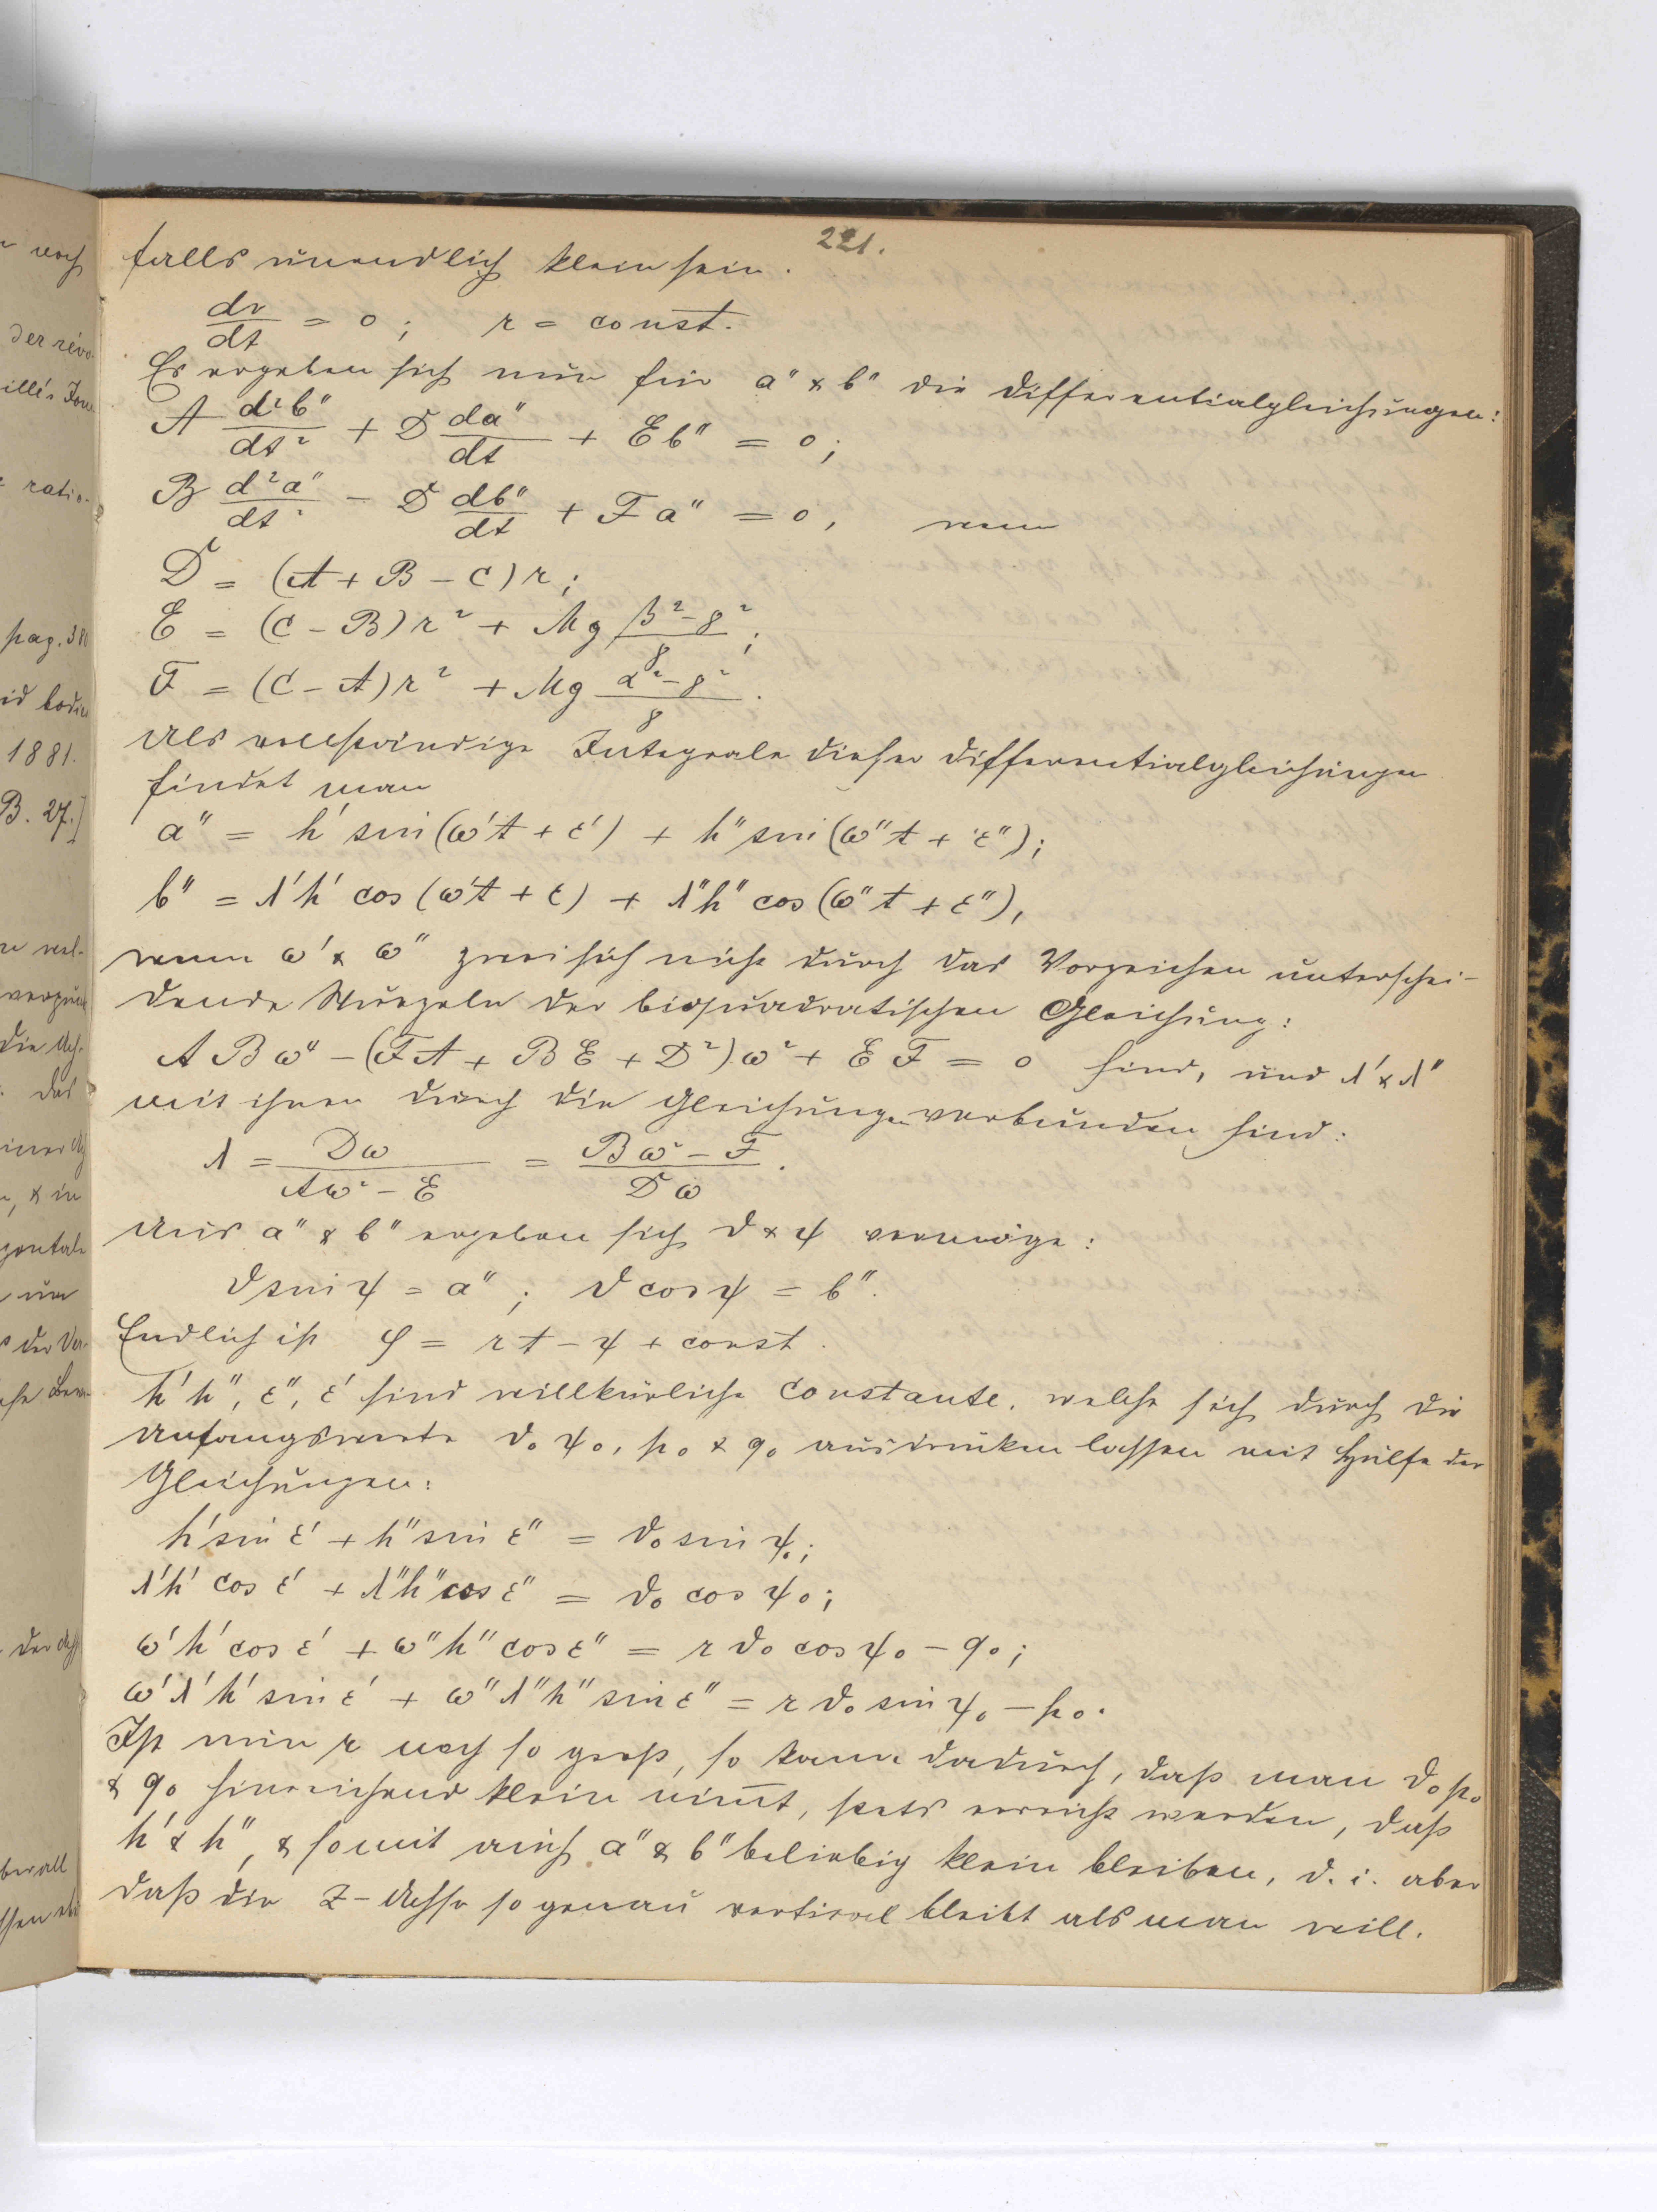 221.
falls unendlich klein sein.
dr/dt = 0; r = const.
Es ergeben sich nun für a" & b" die Differentialgleichungen:
A d²b"/dt² + D da"/dt + E b" = 0;
B d²a"/dt² − D db"/dt + F a" = 0, wenn
D = (A + B − C) r;
E = (C − B) r² + Mg (β² − γ²)/γ;
F = (C − A) r² + Mg (α² − γ²)/γ.
Als vollständige Integrale dieser Differentialgleichungen
findet man
a" = h' sin (ω't + ε') + h" sin (ω"t + ε");
b" = λ'h' cos (ω't + ε) + λ"h" cos (ω"t + ε"),
wenn ω' & ω" zwei sich nicht durch das Vorzeichen unterschei-
dende Wurzeln der biquadratischen Gleichung:
A B ω⁴ − (F A + B E + D²) ω² + E F = 0 sind, und λ' & λ"
mit ihnen durch die Gleichungen verbunden sind:
λ = Dω/(Aω² − E) = (Bω² − F)/(Dω).
Aus a" & b" ergeben sich ϑ & ψ vermöge:
ϑ sin ψ = a"; ϑ cos ψ = b".
Endlich ist φ = rt − ψ + const.
h' h", ε", ε' sind willkürliche Constante, welche sich durch die
Anfangswerte ϑ₀ ψ₀, p₀ & q₀ ausdrücken lassen mit Hülfe der
Gleichungen:
h' sin ε' + h" sin ε" = ϑ₀ sin ψ₀;
λ'h' cos ε' + λ"h" cos ε" = ϑ₀ cos ψ₀;
ω'h' cos ε' + ω"h" cos ε" = r ϑ₀ cos ψ₀ − q₀;
ω'λ'h' sin ε' + ω"λ"h" sin ε" = r ϑ₀ sin ψ₀ − p₀.
Ist nun r noch so groß, so kann dadurch, daß man ϑ₀ p₀
& q₀ hinreichend klein nim̅t, stets erreicht werden, daß
h' & h", & somit auch a" & b" beliebig klein bleiben, d. i. aber
daß die Z-Achse so genau vertical bleibt als man will.
noch
der revo-
ratio-
pag. 38
id bodies
1881.
B. 27.]
die Ach-
das
& in
um
überall